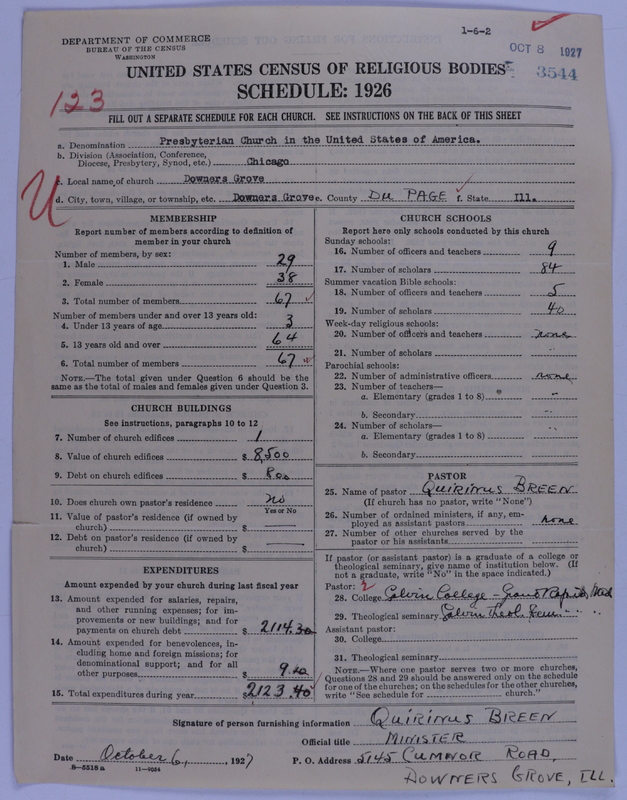 1-6-2
DEPARTMENT OF COMMERCE
BUREAU OF THE CENSUS
WASHINGTON
OCT 8 1927
3544
UNITED STATES CENSUS OF RELIGIOUS BODIES
SCHEDULE: 1926
123
FILL OUT A SEPARATE SCHEDULE FOR EACH CHURCH. SEE INSTRUCTIONS ON THE BACK OF THIS SHEET
a. Denomination Presbyterian Church in the United States of America.
b. Division (Association, Conference,
Diocese, Presbytery, Synod, etc.) Chicago
c. Local name of church Downers Grove
d. City, town, village, or township, etc. Downers Grove e. County DU PAGE f. State Ill.
MEMBERSHIP
Report number of members according to definition of
member in your church
Number of members, by sex:
1. Male 29
2. Female 38
3. Total number of members 67
Number of members under and over 13 years old:
4. Under 13 years of age 3
5. 13 years old and over 64
6. Total number of members 67
NOTE.—The total given under Question 6 should be the
same as the total of males and females given under Question 3.
CHURCH BUILDINGS
See instructions, paragraphs 10 to 12
7. Number of church edifices 1
8. Value of church edifices $ 8,500
9. Debt on church edifices $ 800
10. Does church own pastor's residence no
Yes or No
11. Value of pastor's residence (if owned by
church) $
12. Debt on pastor's residence (if owned by
church) $
EXPENDITURES
Amount expended by your church during last fiscal year
13. Amount expended for salaries, repairs,
and other running expenses; for im-
provements or new buildings; and for
payments on church debt $ 2114.30
14. Amount expended for benevolences, in-
cluding home and foreign missions; for
denominational support; and for all
other purposes $ 9.10
15. Total expenditures during year $ 2123.40
CHURCH SCHOOLS
Report here only schools conducted by this church
Sunday schools:
16. Number of officers and teachers 9
17. Number of scholars 84
Summer vacation Bible schools:
18. Number of officers and teachers 5
19. Number of scholars 40
Week-day religious schools:
20. Number of officers and teachers none
21. Number of scholars "
Parochial schools:
22. Number of administrative officers none
23. Number of teachers—
a. Elementary (grades 1 to 8) "
b. Secondary "
24. Number of scholars—
a. Elementary (grades 1 to 8) "
b. Secondary
PASTOR
25. Name of pastor QUIRINUS BREEN
(If church has no pastor, write "None")
26. Number of ordained ministers, if any, em-
ployed as assistant pastors none
27. Number of other churches served by the
pastor or his assistants
If pastor (or assistant pastor) is a graduate of a college or
theological seminary, give name of institution below. (If
not a graduate, write "No" in the space indicated.)
Pastor: 2
28. College Calvin College - Grand Rapids, Mich
29. Theological seminary Calvin Theol. Sem. " "
Assistant pastor:
30. College
31. Theological seminary
NOTE.—Where one pastor serves two or more churches,
Questions 28 and 29 should be answered only on the schedule
for one of the churches; on the schedules for the other churches,
write "See schedule for church."
Signature of person furnishing information QUIRINUS BREEN
Official title MINISTER
Date October 6, 1927 P. O. Address 5145 CUMNOR ROAD,
DOWNERS GROVE, ILL.
8-5518 a 11-9054